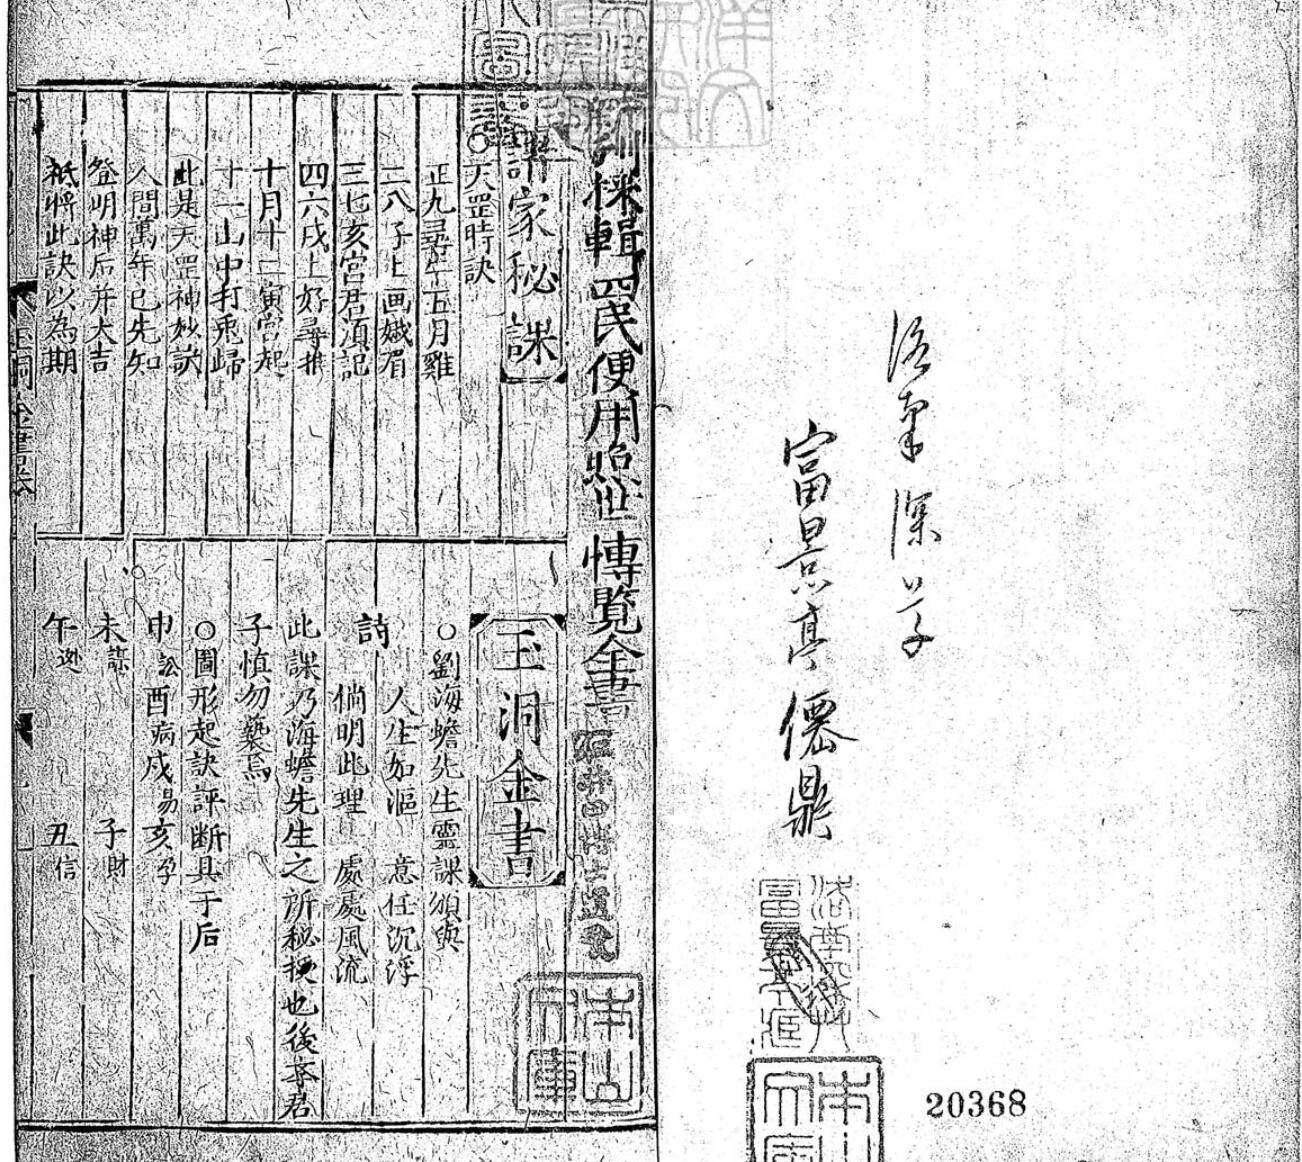 洛東深草
富景亭僊鼎
20368
本山文庫
採輯四民便用照世慱覽全書
諸家秘課
○天罡時訣
正九尋午五月雞
二八子上画娥眉
三七亥宮君湏記
四六戌上好尋推
十月十二寅宮起
十一山中打兎歸
此是天罡神妙訣
人間萬年已先知
登明神后并大吉
祗將此訣以為期
玉洞金書
○劉海蟾先生靈課頌與
詩 人生如漚 意任沉浮
倘明此理 處處風流
此課乃海蟾先生之所秘授也後夲君
子慎勿褻焉
○圖形起訣評断具于后
申訟酉病戌易亥孕
未謀 子財
午逃 丑信
本山文庫